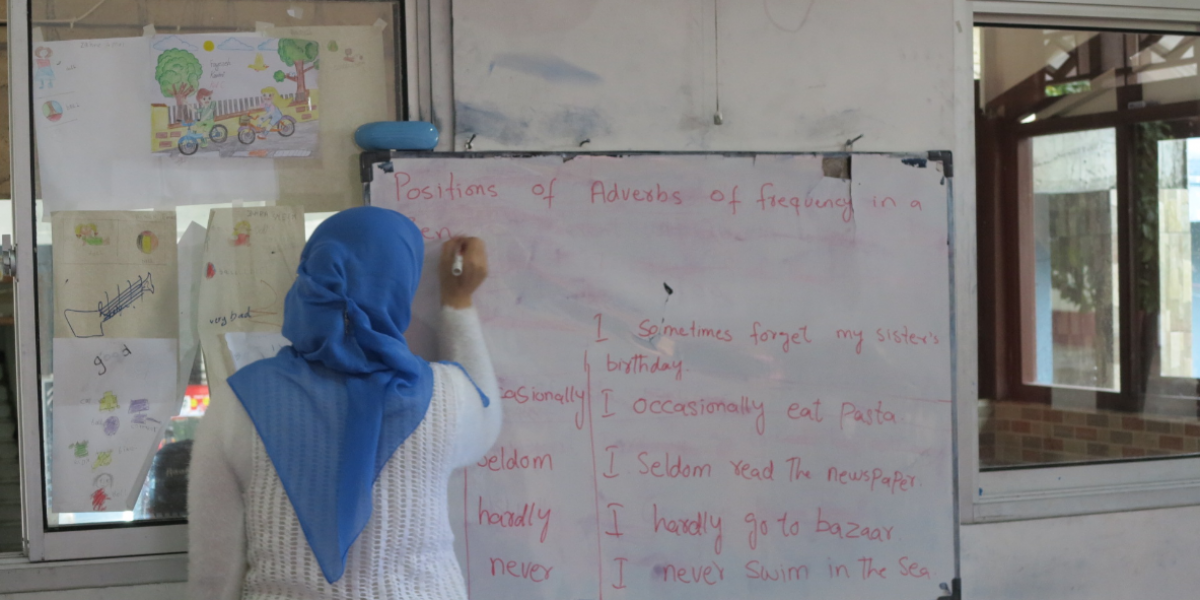 Positions of Adverbs of frequency in a
Sen
I sometimes forget my sister's
birthday.
casionally I occasionally eat Pasta.
seldom I Seldom read The newspaper.
hardly I hardly go to bazaar.
never I never swim in The Sea
very bad
good